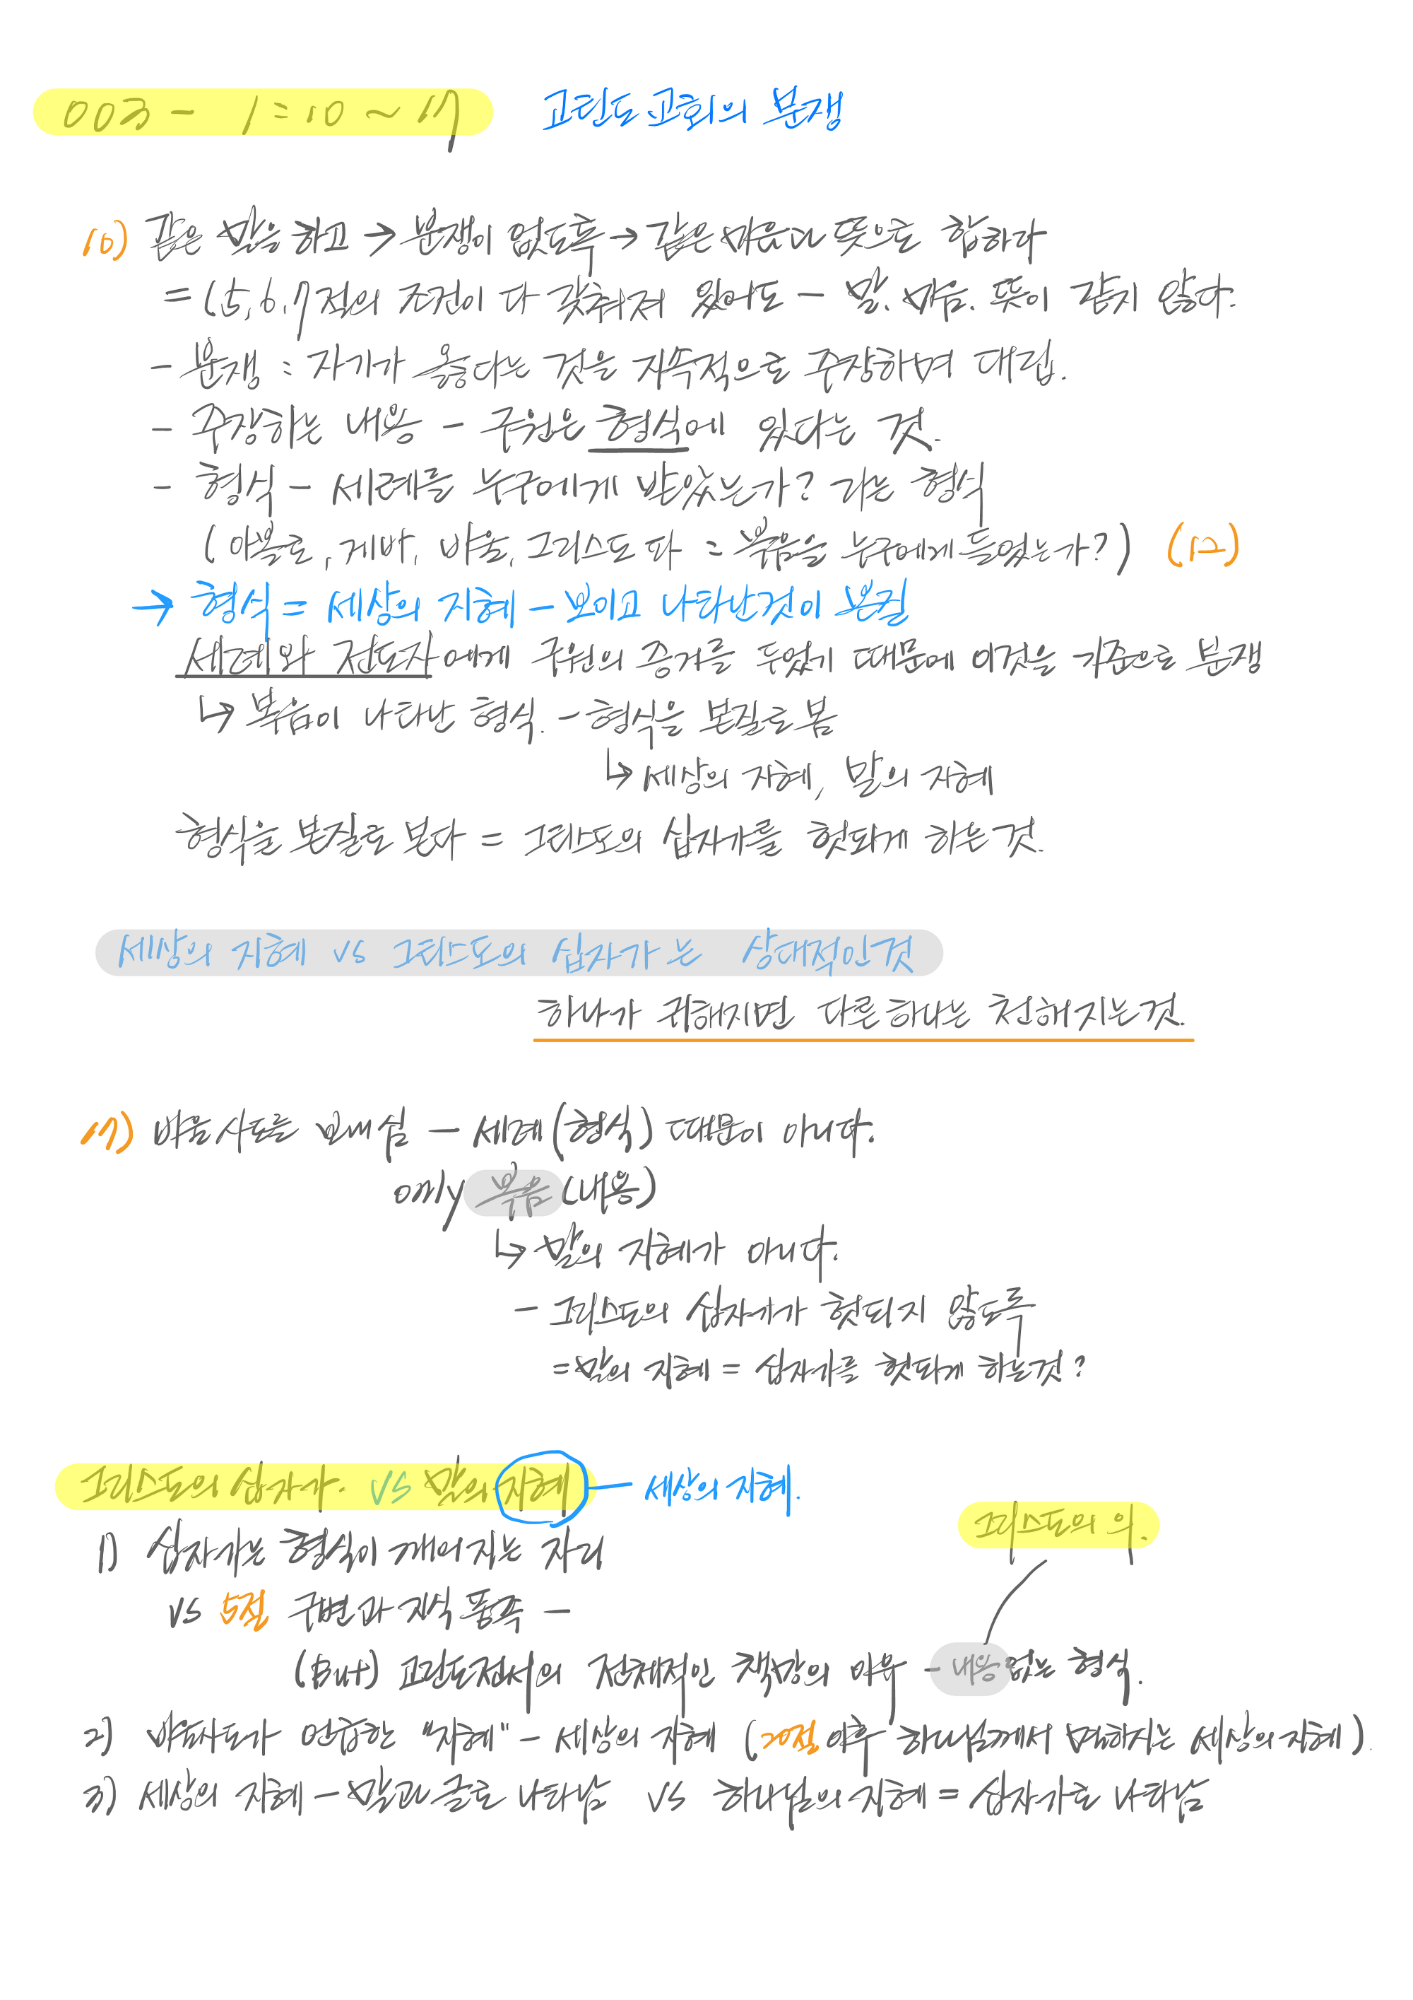 003 - 1:10 ~ 17 고린도교회의 분쟁
10) 같은 말을 하고 → 분쟁이 없도록 → 같은 마음과 뜻으로 합하라
= (5,6,7절의 조건이 다 갖춰져 있어도 - 말, 마음, 뜻이 같지 않다.
- 분쟁 : 자기가 옳다는 것을 지속적으로 주장하며 대립.
- 주장하는 내용 - 구원은 형식에 있다는 것.
- 형식 - 세례를 누구에게 받았는가? 라는 형식
(아볼로, 게바, 바울, 그리스도파 = 복음을 누구에게 들었는가?) (12)
→ 형식 = 세상의 지혜 - 보이고 나타난것이 본질
세례와 전도자에게 구원의 증거를 두었기 때문에 이것을 기준으로 분쟁
↳ 복음이 나타난 형식. - 형식을 본질로 봄
↳ 세상의 지혜, 말의 지혜
형식을 본질로 본다 = 그리스도의 십자가를 헛되게 하는것.
세상의 지혜 vs 그리스도의 십자가는 상대적인것
하나가 귀해지면 다른하나는 천해지는것.
17) 바울사도를 보내심 - 세례(형식) 때문이 아니다.
only 복음(내용)
↳ 말의 지혜가 아니다.
- 그리스도의 십자가가 헛되지 않도록
= 말의 지혜 = 십자가를 헛되게 하는것?
그리스도의 십자가. vs 말의 지혜 — 세상의 지혜.
그리스도의 의.
1) 십자가는 형식이 깨어지는 자리
vs 5절 구변과 지식 풍족 -
(But) 고린도전서의 전체적인 책망의 이유 - 내용 없는 형식.
2) 바울사도가 언급한 "지혜" - 세상의 지혜 (20절 이후 하나님께서 멸하시는 세상의 지혜).
3) 세상의 지혜 - 말과 글로 나타남 vs 하나님의 지혜 = 십자가로 나타남